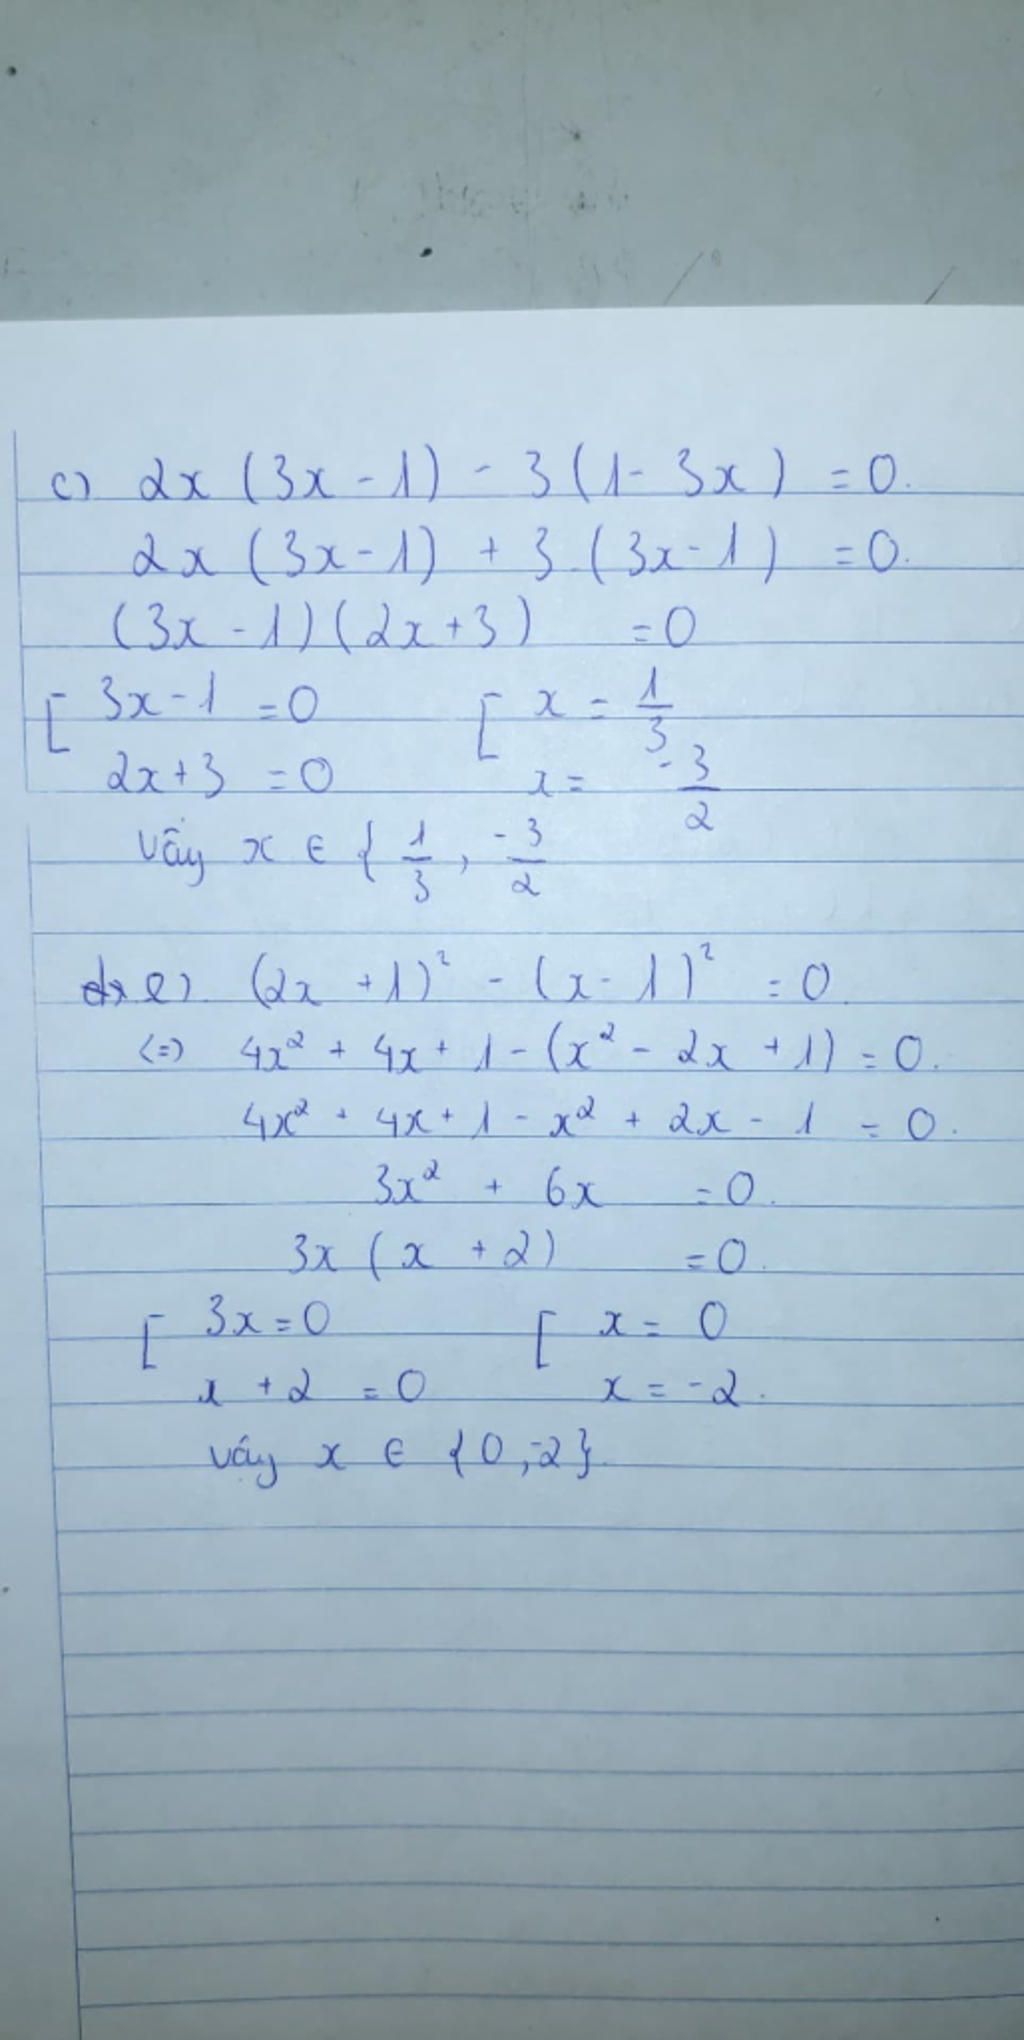 c) 2x (3x - 1) - 3 (1 - 3x) = 0.
2x (3x - 1) + 3.(3x - 1) = 0.
(3x - 1)(2x + 3) = 0
[ 3x - 1 = 0 [ x = 1/3
2x + 3 = 0 x = -3/2
vậy x ∈ { 1/3 , -3/2
e) (2x + 1)² - (x - 1)² = 0
<=> 4x² + 4x + 1 - (x² - 2x + 1) = 0.
4x² + 4x + 1 - x² + 2x - 1 = 0.
3x² + 6x = 0.
3x (x + 2) = 0.
[ 3x = 0 [ x = 0
x + 2 = 0 x = -2.
vậy x ∈ {0,-2}.